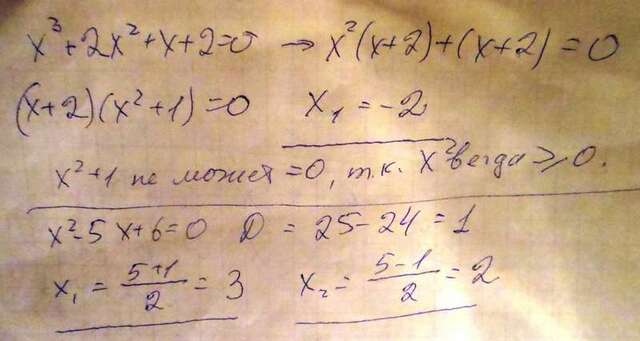 x³+2x²+x+2=0 → x²(x+2)+(x+2)=0
(x+2)(x²+1)=0 x₁=-2
x²+1 не может =0, т.к. x² всегда ≥0.
x²-5x+6=0 D=25-24=1
x₁=\frac{5+1}{2}=3 x₂=\frac{5-1}{2}=2